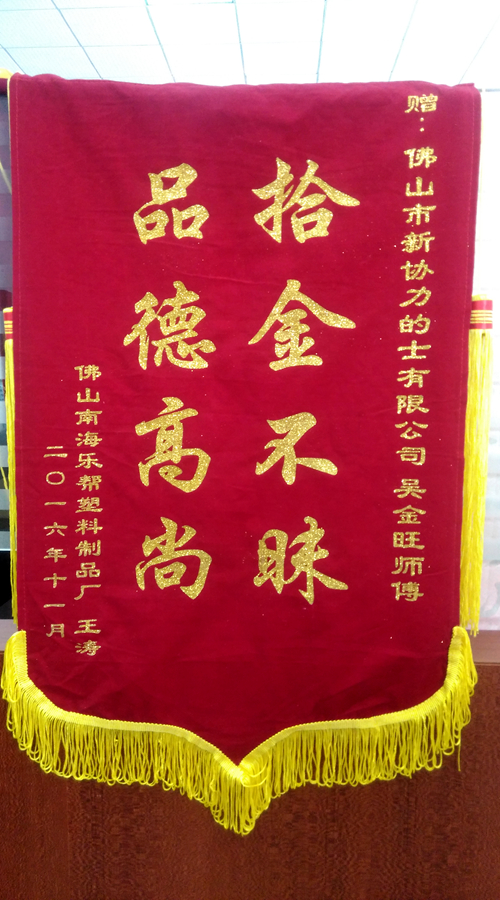 赠：佛山市新协力的士有限公司 吴金旺师傅
拾金不昧
品德高尚
佛山南海乐帮塑料制品厂 王涛
二〇一六年十一月